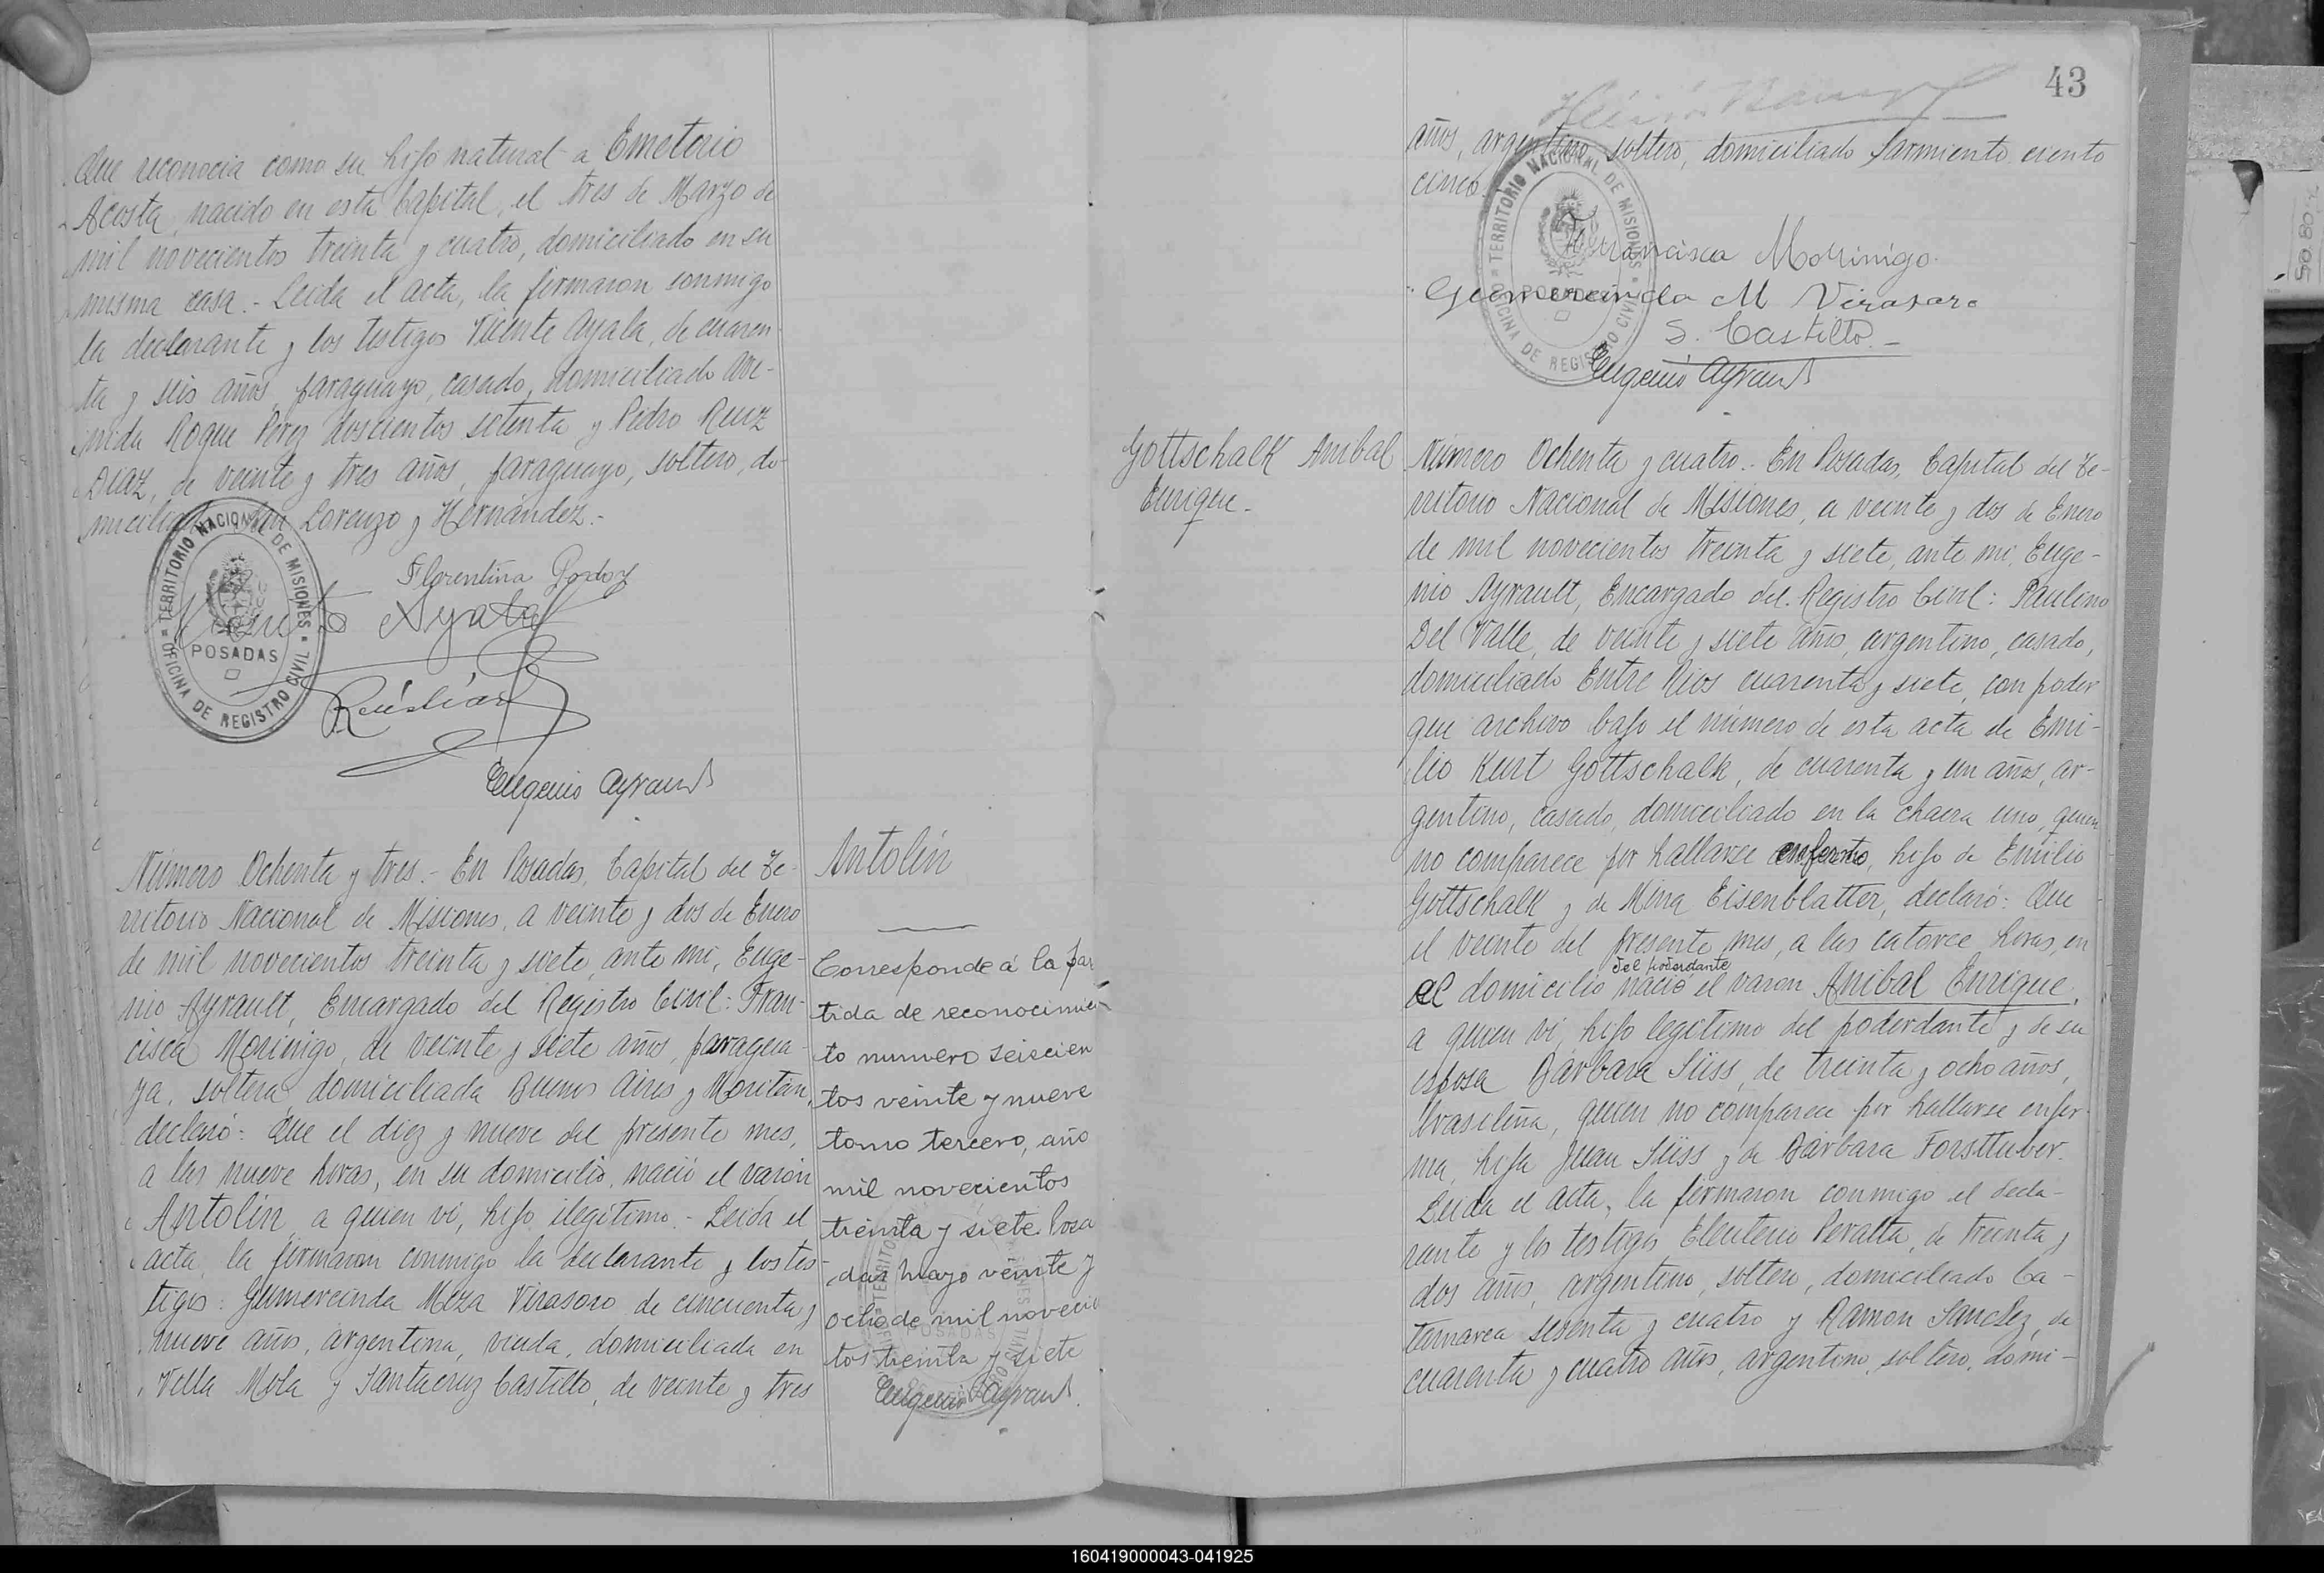 Que reconocia como su hijo natural a Emeterio
Acosta, nacido en esta Capital, el tres de Marzo de
mil novecientos treinta y cuatro, domiciliado en su
misma casa.- Leida el acta, la firmaron conmigo
la declarante y los testigos Vicente Ayala, de cuaren
ta y seis años, paraguayo, casado, domiciliado Ave-
nida Roque Perez doscientos setenta y Pedro Ruiz
Diaz, de veinte y tres años, paraguayo, soltero, do-
miciliado San Lorenzo y Hernández.-
TERRITORIO NACIONAL DE MISIONES
POSADAS
OFICINA DE REGISTRO CIVIL
Florentina Godoy
Vicente Ayala
Ruisdiaz
Eugenio Ayrault
Número Ochenta y tres.- En Posadas, Capital del Te-
rritorio Nacional de Misiones, a veinte y dos de Enero
de mil novecientos treinta y siete, ante mi, Euge-
nio Ayrault, Encargado del Registro Civil: Fran-
cisca Morinigo, de veinte y siete años, paragua-
ya, soltera, domiciliada Buenos Aires y Moritán,
declaró: Que el diez y nueve del presente mes,
a las nueve horas, en su domicilio, nació el varón
Antolín, a quien vi, hijo ilegitimo.- Leida el
acta, la firmaron conmigo la declarante y los tes-
tigos: Gumercinda Meza Virasoro de cincuenta y
nueve años, argentina, viuda, domiciliada en
Villa Mola y Santacruz Castillo, de veinte y tres
Antolín
Corresponde á la par
tida de reconocimien
to numero seiscien
tos veinte y nueve
tomo tercero, año
mil novecientos
treinta y siete. Posa
das mayo veinte y
ocho de mil novecien
tos treinta y siete
Eugenio Ayrault
43
años, argentino, soltero, domiciliado Sarmiento ciento
cinco.
TERRITORIO NACIONAL DE MISIONES
POSADAS
OFICINA DE REGISTRO CIVIL
Francisca Morinigo.
Gumercinda M Virasaro
S. Castillo.-
Eugenio Ayrault
Gottschalk Anibal
Enrique.-
Número Ochenta y cuatro.- En Posadas, Capital del Te-
rritorio Nacional de Misiones, a veinte y dos de Enero
de mil novecientos treinta y siete, ante mi, Euge-
nio Ayrault, Encargado del Registro Civil: Paulino
Del Valle, de veinte y siete años, argentino, casado,
domiciliado Entre Rios cuarenta y siete, con poder
que archivo bajo el número de esta acta de Emi-
lio Kurt Gottschalk, de cuarenta y un años, ar-
gentino, casado, domiciliado en la chacra uno, quien
no comparece por hallarse enfermo, hijo de Emilio
Gottschalk y de Mina Eisenblatter, declaró: Que
el veinte del presente mes, a las catorce horas, en
del poderdante
el domicilio nació el varon Anibal Enrique,
a quien vi, hijo legitimo del poderdante y de su
esposa Bárbara Süss, de treinta y ocho años,
brasileña, quien no comparece por hallarse enfer-
ma, hija Juan Süss y de Bárbara Forsttuber.
Leida el acta, la firmaron conmigo el decla-
rante y los testigos Eleuterio Peralta, de treinta y
dos años, argentino, soltero, domiciliado Ca-
tamarca sesenta y cuatro y Ramon Sanchez, de
cuarenta y cuatro años, argentino, soltero, domi-
160419000043-041925